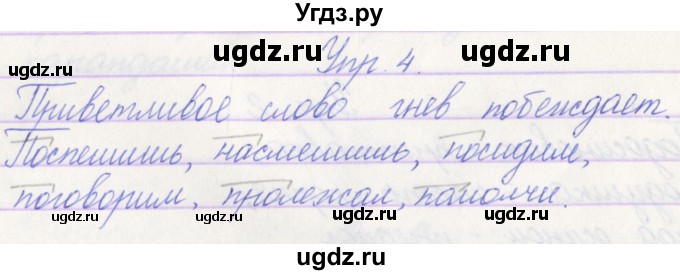 Угдз.ру
ugdz.ru ugdz.ru
ugdz.ru Упр. 4. ugdz.ru
Приветливое слово гнев побеждает.
ugdz.ru ugdz.ru ugdz.ru
Поспешишь, насмешишь, посидим,
поговорим, пролежал, помолчи.
ugdz.ru ugdz.ru ugdz.ru
ugdz.ru